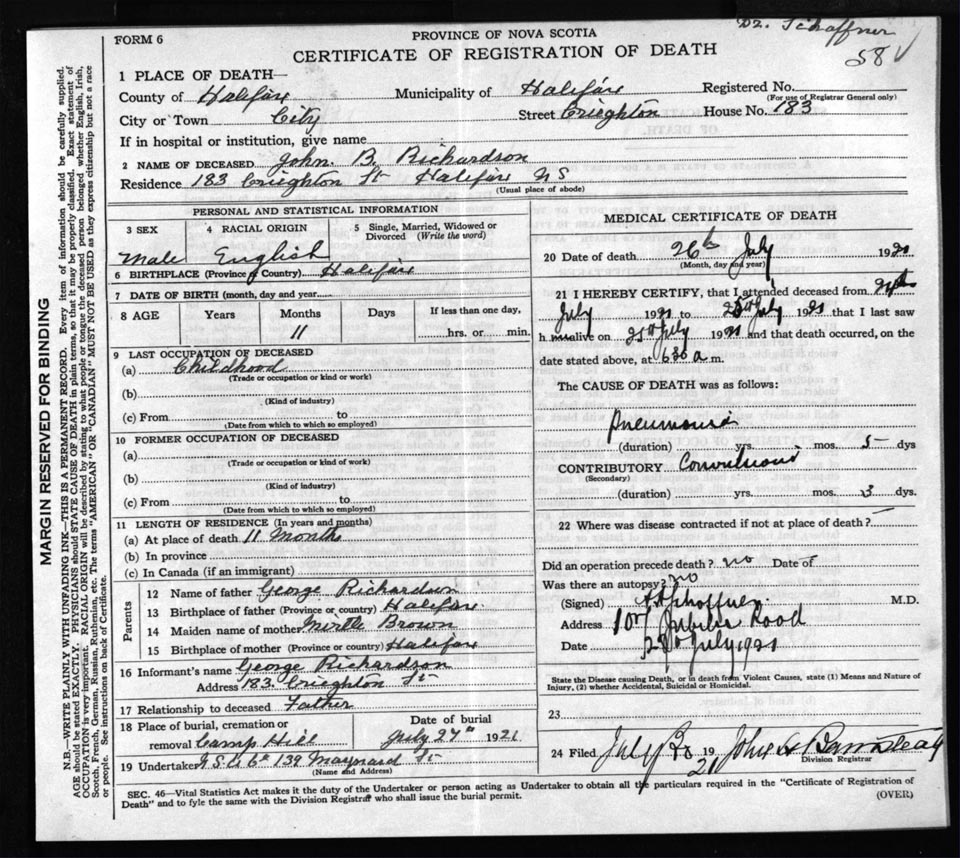 Dr. Schaffner
58 √
FORM 6
PROVINCE OF NOVA SCOTIA
CERTIFICATE OF REGISTRATION OF DEATH
1 PLACE OF DEATH—
County of Halifax Municipality of Halifax Registered No.
(For use of Registrar General only)
City or Town City Street Crieghton House No. 183
If in hospital or institution, give name
2 NAME OF DECEASED John. B. Richardson
Residence 183 Crieghton St Halifax NS
(Usual place of abode)
PERSONAL AND STATISTICAL INFORMATION
3 SEX 4 RACIAL ORIGIN 5 Single, Married, Widowed or Divorced (Write the word)
Male English
6 BIRTHPLACE (Province or Country) Halifax
7 DATE OF BIRTH (month, day and year)
8 AGE Years Months Days If less than one day,
11 hrs. or min.
9 LAST OCCUPATION OF DECEASED
(a) Childhood
(Trade or occupation or kind or work)
(b)
(Kind of industry)
(c) From to
(Date from which to which so employed)
10 FORMER OCCUPATION OF DECEASED
(a)
(Trade or occupation or kind of work)
(b)
(Kind of industry)
(c) From to
(Date from which to which so employed)
11 LENGTH OF RESIDENCE (In years and months)
(a) At place of death 11 Months
(b) In province
(c) In Canada (if an immigrant)
Parents
12 Name of father George Richardson
13 Birthplace of father (Province or country) Halifax
14 Maiden name of mother Mirtle Brown
15 Birthplace of mother (Province or country) Halifax
16 Informant's name George Richardson
Address 183 Crieghton St
17 Relationship to deceased Father
18 Place of burial, cremation or removal Camp Hill
Date of burial July 27th 1921
19 Undertaker 139 Maynard St
(Name and Address)
MEDICAL CERTIFICATE OF DEATH
20 Date of death 26th July 1921
(Month, day and year)
21 I HEREBY CERTIFY, that I attended deceased from
July 1921 to July 1921 that I last saw
h im alive on 25th July 1921 and that death occurred, on the
date stated above, at 6:30 a m.
The CAUSE OF DEATH was as follows:
Pneumonia
(duration) yrs. mos. 5 dys
CONTRIBUTORY Convulsions
(Secondary)
(duration) yrs. mos. 3 dys.
22 Where was disease contracted if not at place of death?
Did an operation precede death? no Date of
Was there an autopsy? no
(Signed) Schaffner M.D.
Address 107 Jubilee Road
Date July 1921
State the Disease causing Death, or in death from Violent Causes, state (1) Means and Nature of
Injury, (2) whether Accidental, Suicidal or Homicidal.
23
24 Filed July 1921 John Barnstead
Division Registrar
SEC. 46—Vital Statistics Act makes it the duty of the Undertaker or person acting as Undertaker to obtain all the particulars required in the "Certificate of Registration of
Death" and to fyle the same with the Division Registrar who shall issue the burial permit.
(OVER)
MARGIN RESERVED FOR BINDING
N.B.—WRITE PLAINLY WITH UNFADING INK—THIS IS A PERMANENT RECORD. Every item of information should be carefully supplied.
AGE should be stated EXACTLY. PHYSICIANS should STATE CAUSE OF DEATH in plain terms, so that it may be properly classified. Exact statement of
OCCUPATION is very important. RACIAL ORIGIN will be described by stating to what people or tongue the deceased person belonged whether English, Irish,
Scotch, French, German, Russian, Ruthenian, etc. The terms "AMERICAN" OR "CANADIAN" MUST NOT BE USED as they express citizenship but not a race
or people. See instructions on back of Certificate.